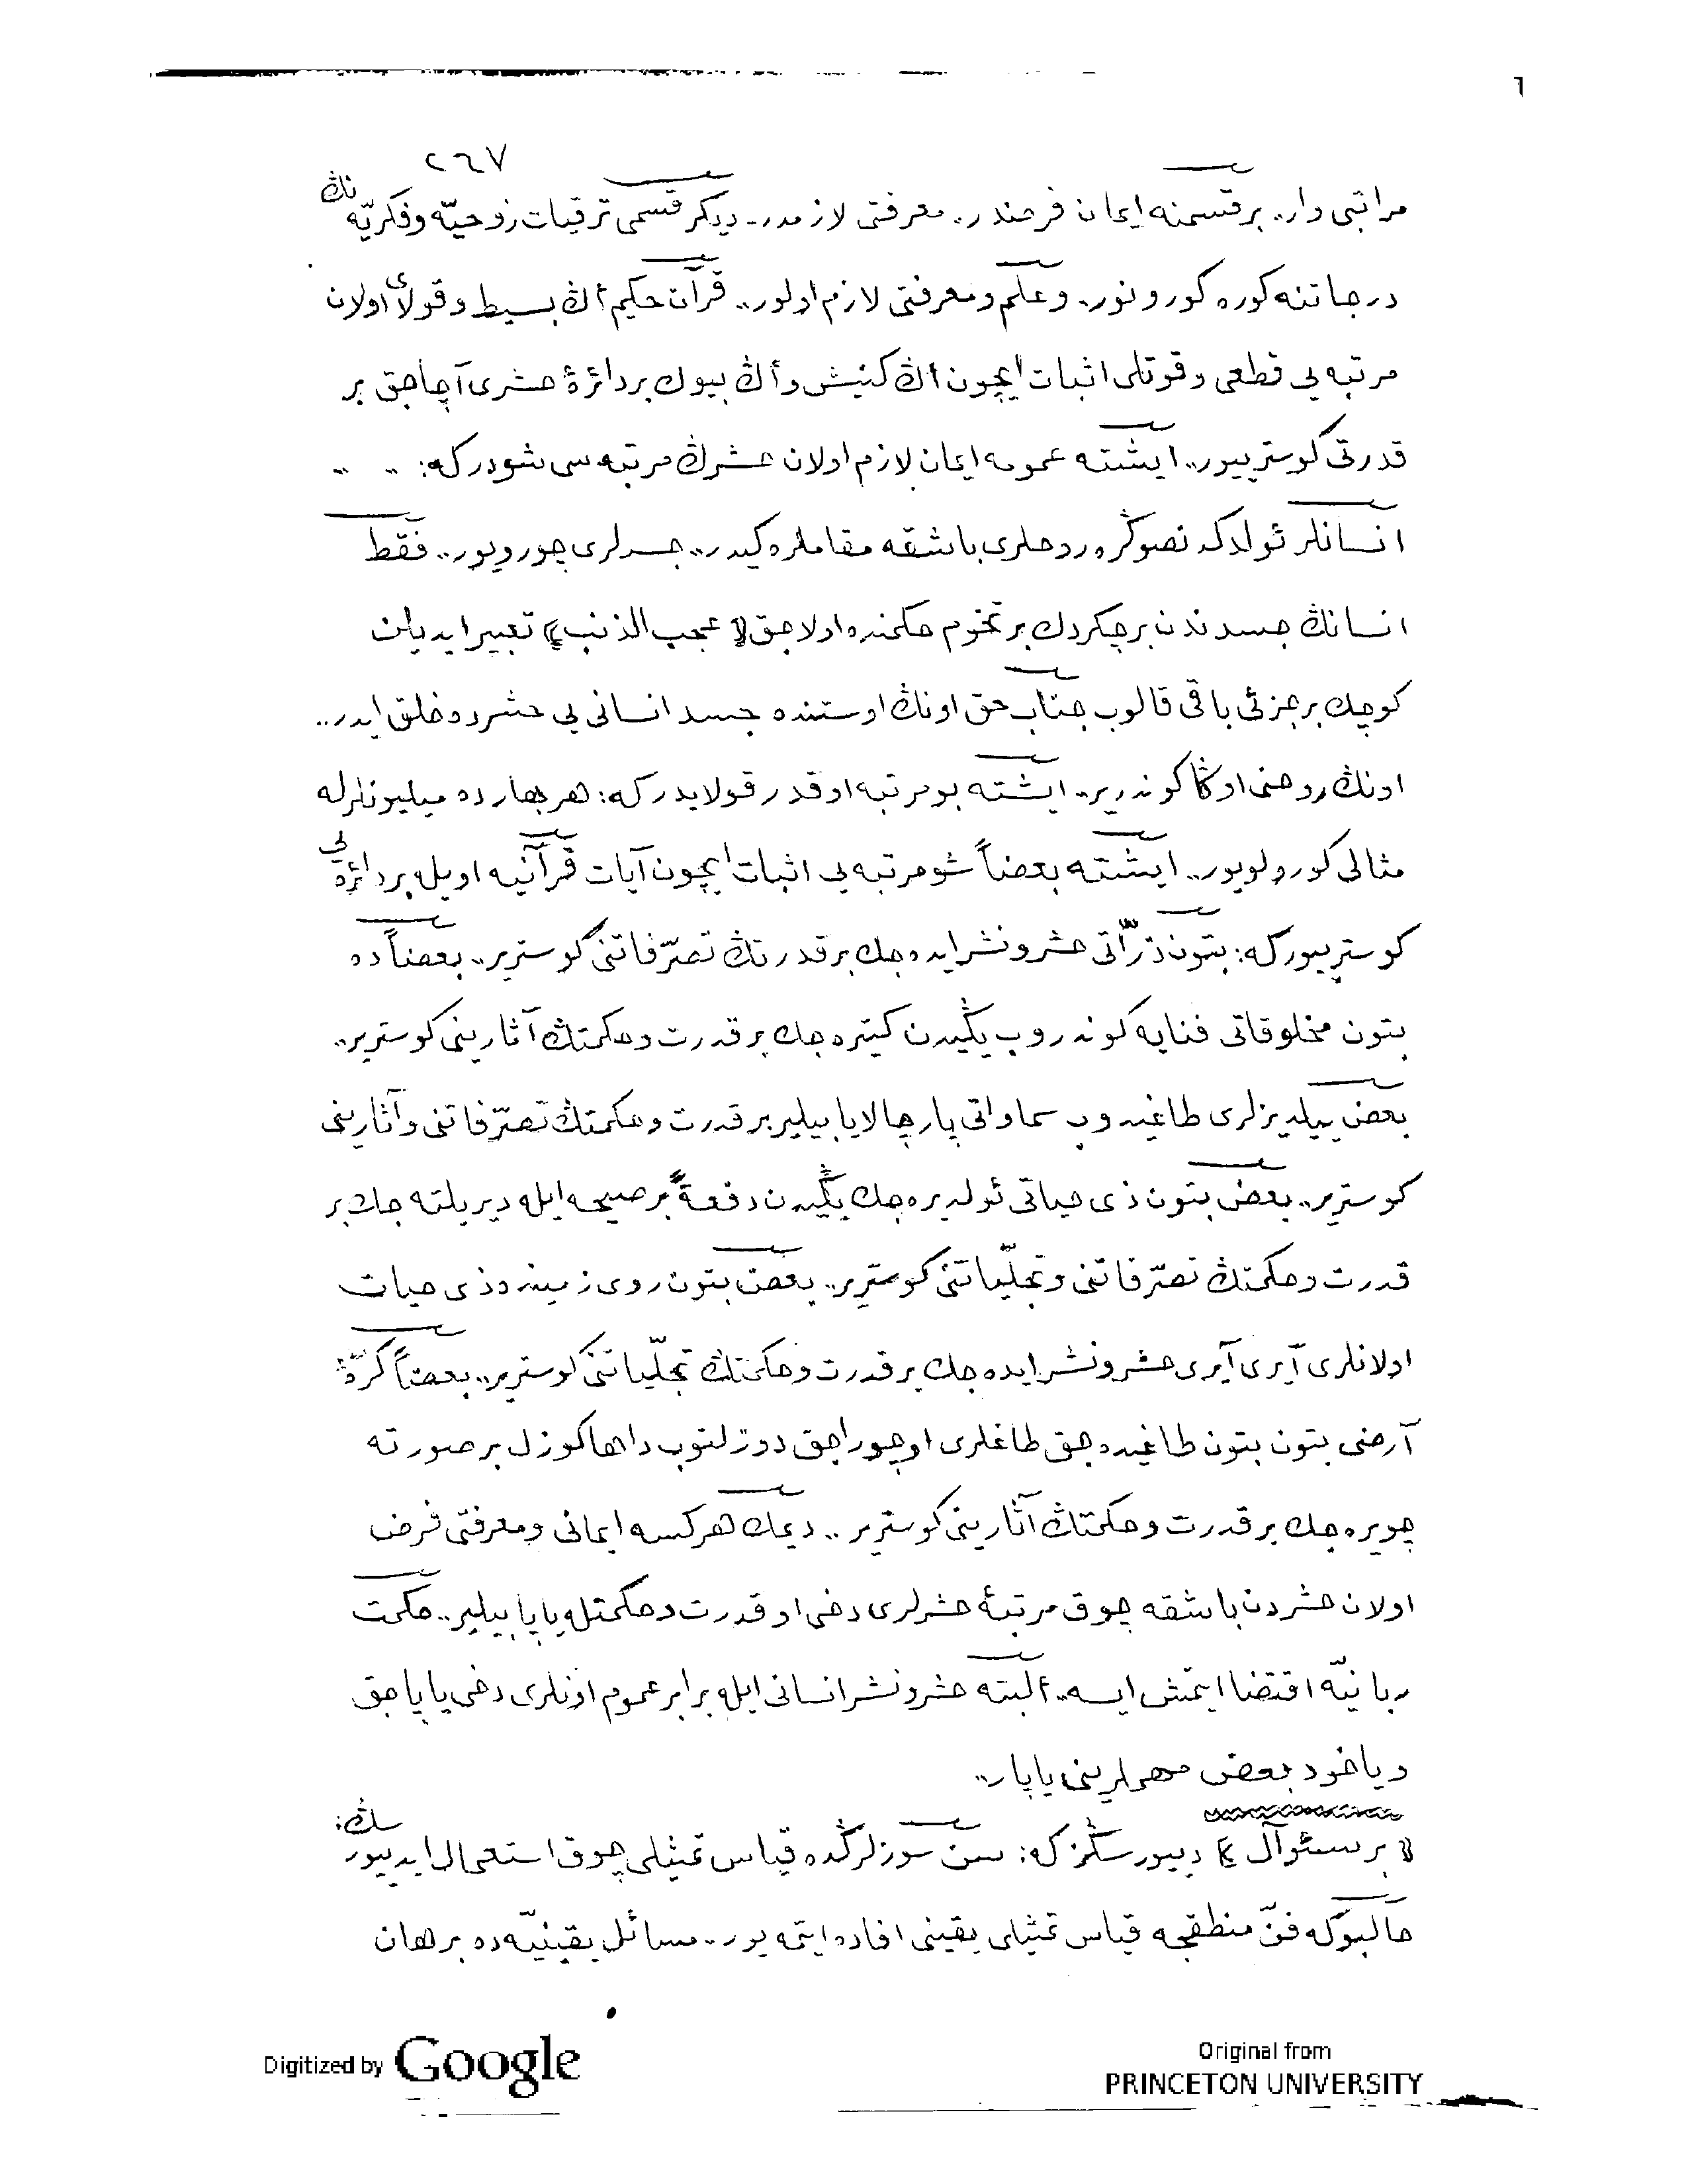 ٢٦٧
مراتبى وار.. بر قسمنه ايمان فرضدر.. معرفتى لازمدر.. ديگر قسمى ترقيات روحيّه وفكريّه نڭ
درجاتنه كوره كورونور.. وعلم ومعرفتى لازم اولور.. قرآن حكيم أڭ بسيط وقولاى اولان
مرتبه يى قطعى وقوتلى اثبات ايچون أڭ كنيش وأڭ بيوك بر دائرۀ حشرى آچاجق بر
قدرتى كوستريیور.. ايشته عمومه ايمان لازم اولان حشرڭ مرتبه سى شودركه:
انسانلر ئولدكدنصوڭره روحلرى باشقه مقاملره كيدر.. جسدلرى چورويور.. فقط
انسانڭ جسدندن بر چكردك بر تخوم حكمنده اولاجق ﴿عجب الذنب﴾ تعبير ايديلن
كوچك بر جزئى باقى قالوب جناب حق اونڭ اوستنده جسد انسانى يى حشرده خلق ايدر..
اونڭ روحنى اوڭا كوندرير.. ايشته بو مرتبه اوقدر قولايدركه: هر بهارده ميليونلرله
مثالى كورولويور.. ايشته بعضاً شو مرتبه يى اثبات ايچون آيات قرآنيه اويله بر دائره يى
كوستريیوركه: بتون ذرّاتى حشر ونشر ايده جك بر قدرتڭ تصرّفاتنى كوسترير.. بعضاً ده
بتون مخلوقاتى فنايه كوندروب يڭيدن كتيره جك بر قدرت وحكمتڭ آثارينى كوسترير..
بعض ييلديزلرى طاغيدوب سماواتى پارچالايابيلير بر قدرت وحكمتڭ تصرّفاتنى وآثارينى
كوسترير.. بعض بتون ذى حياتى ئولديره جك يڭيدن دفعةً بر صيحه ايله ديريلته جك بر
قدرت وحكمتڭ تصرّفاتنى وتجلّياتنى كوسترير.. بعض بتون روى زمينده ذى حيات
اولانلرى آيرى آيرى حشر ونشر ايده جك بر قدرت وحكمتڭ تجلّياتنى كوسترير.. بعضاً كرّۀ
آرضى بتون بتون طاغيده جق طاغلرى اوچوراجق دوزلتوب داها كوزل بر صورته
چويره جك بر قدرت وحكمتڭ آثارينى كوسترير.. ديمك هركسه ايمانى ومعرفتى فرض
اولان حشردن باشقه چوق مرتبۀ حشرلرى دخى او قدرت وحكمتله ياپابيلير.. حكمت
ربانيّه اقتضا ايتمش ايسه.. ألبته حشر ونشر انسانى ايله برابر عموم اونلرى دخى ياپاجق
وياخود بعض مهملرينى ياپار..
﴿بر سئوآل﴾ دييورسڭزكه: سن سوزلرڭده قياس تمثيلى چوق استعمال ايدييورسڭ:
حالبوكه فنّ منطقجه قياس تمثيلى يقينى افاده ايتمه يور.. مسائل يقينيّه ده برهان
Digitized by Google
Original from
PRINCETON UNIVERSITY